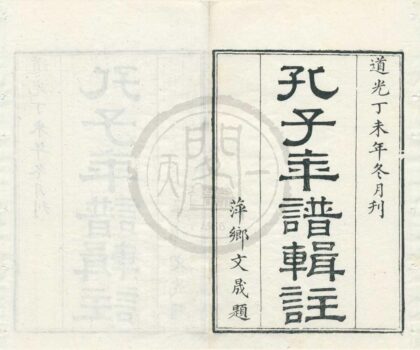 道光丁未年冬月刊
孔子年譜輯註
萍鄉文晟題